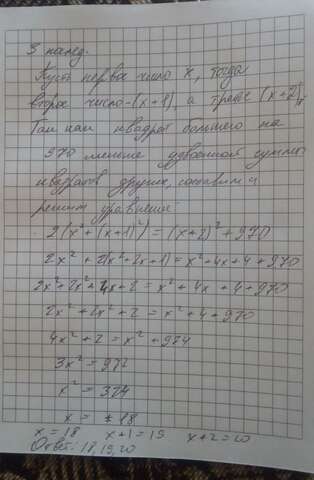 3 задач.
Пусть первое число x, тогда
второе число-(x+1), а третье (x+2),
Так как квадрат большего на
970 меньше удвоенной суммы
квадратов других, составим и
решим уравнение:
2(x²+(x+1)²)=(x+2)²+970
2x²+2(x²+2x+1)=x²+4x+4+970
2x²+2x²+4x+2=x²+4x+4+970
2x²+2x²+2=x²+4+970
4x²+2=x²+974
3x²=972
x²=324
x=±18
x=18 x+1=19 x+2=20
Ответ: 18,19,20